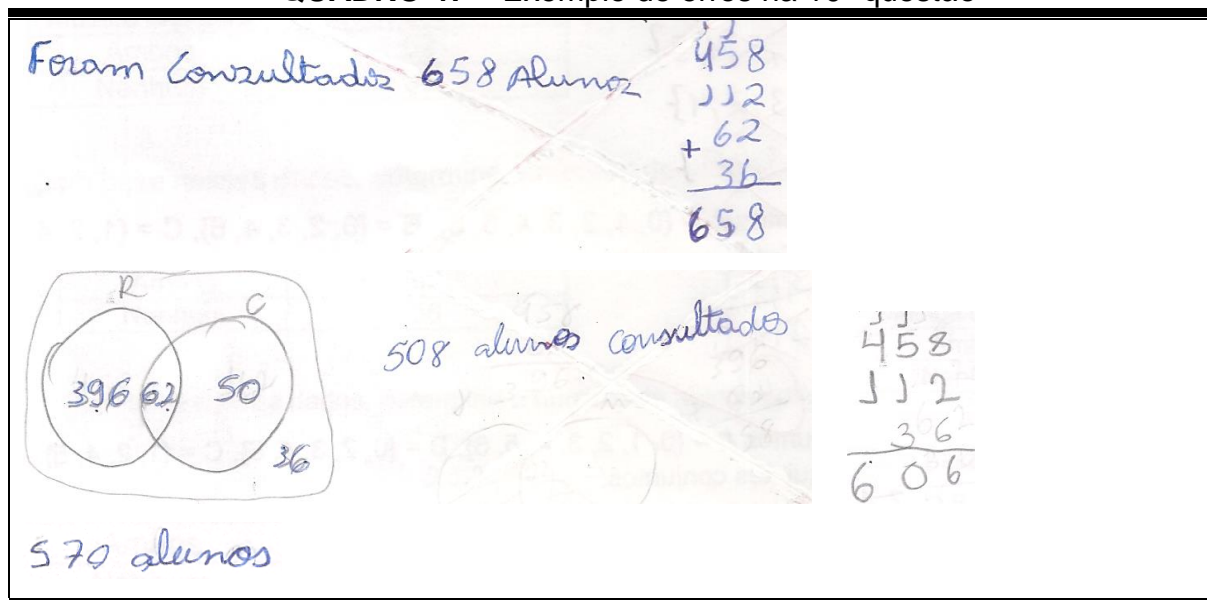 Foram Consultados 658 Alunos
458
112
+ 62
36
658
R
C
396 62 50
36
508 alunos consultados
458
112
36
606
570 alunos